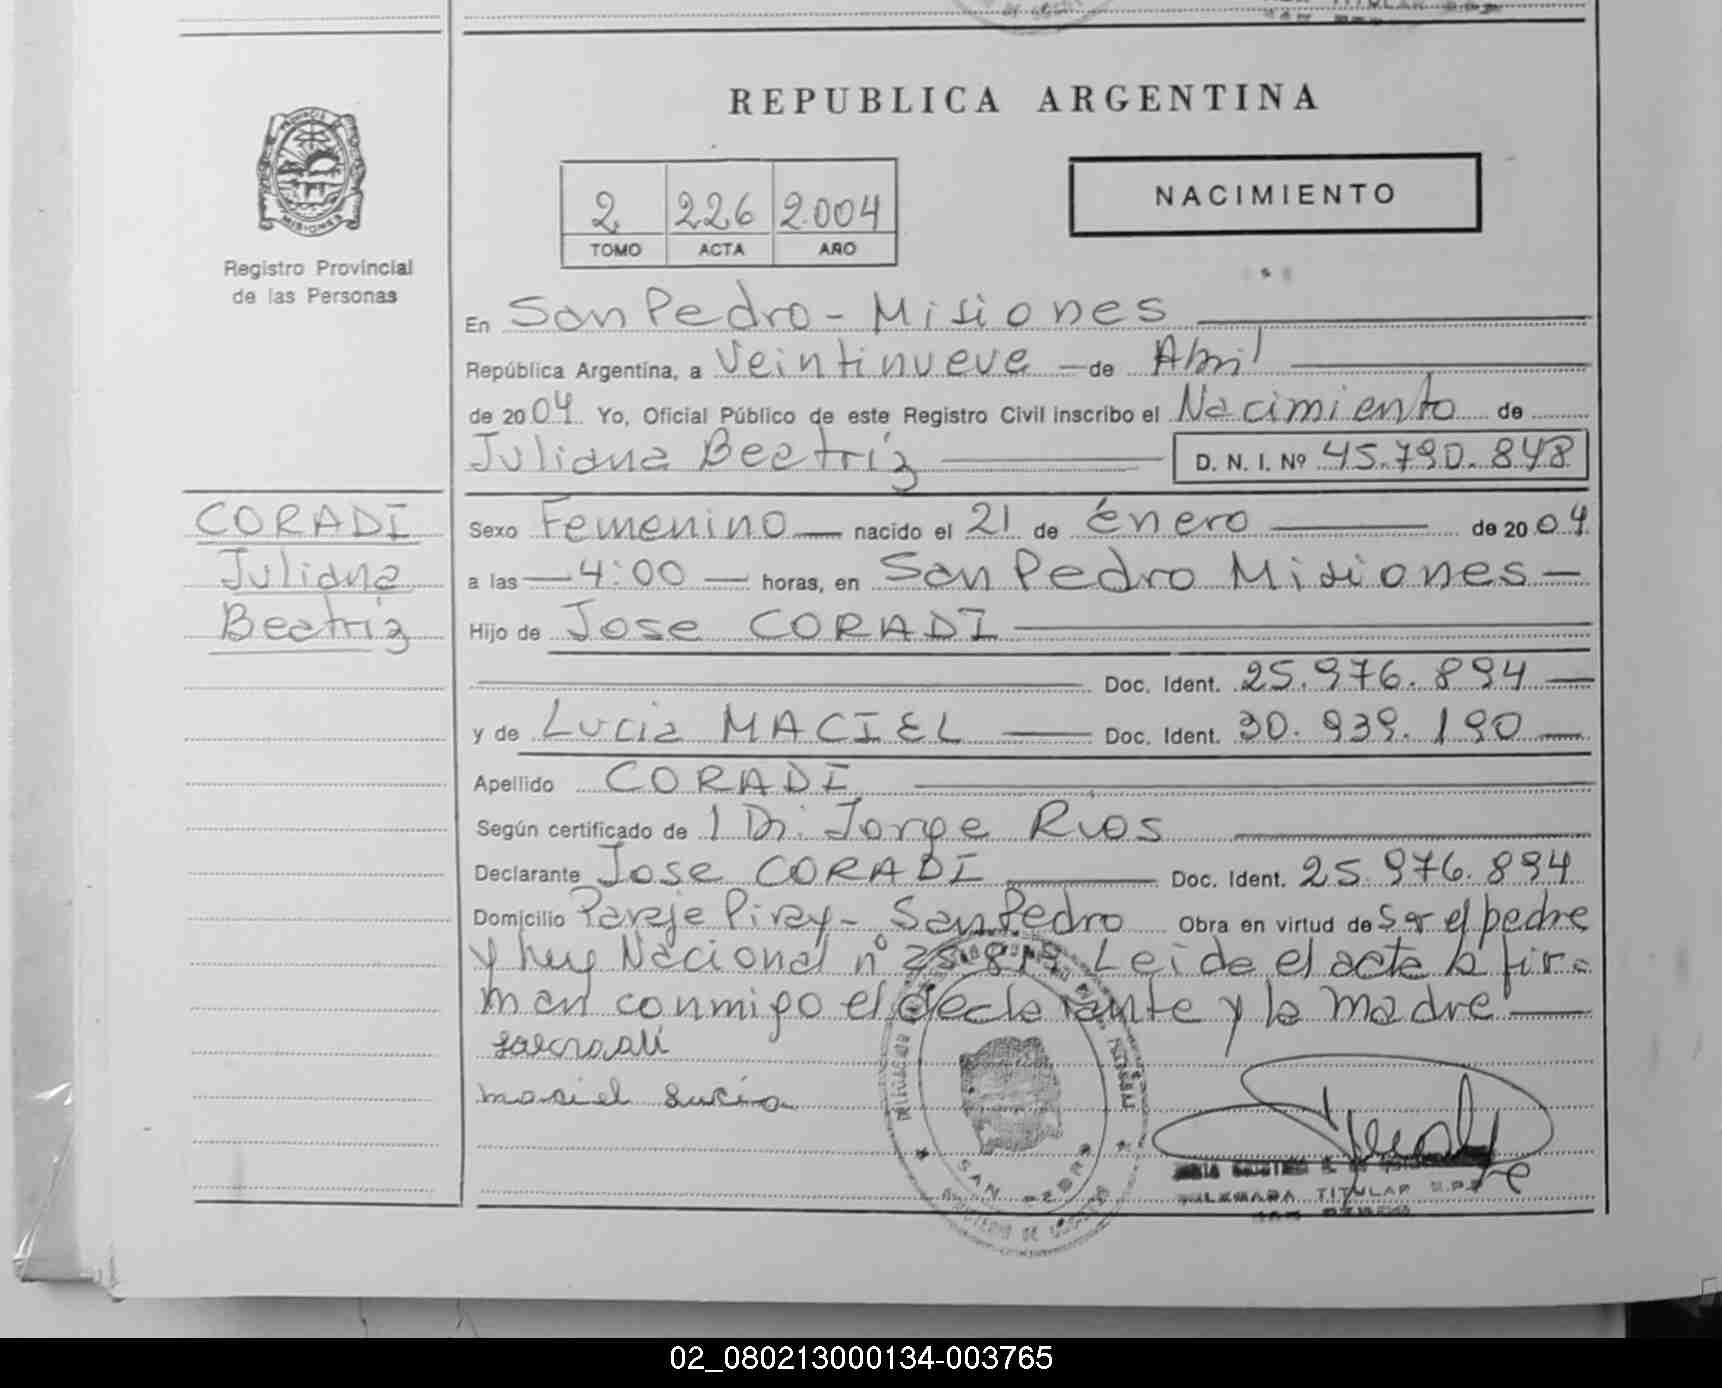 REPUBLICA ARGENTINA
PROVINCIA DE
MISIONES
Registro Provincial
de las Personas
2 226 2.004
TOMO ACTA AÑO
NACIMIENTO
En San Pedro - Misiones
República Argentina, a Veintinueve de Abril
de 2004 Yo, Oficial Público de este Registro Civil inscribo el Nacimiento de
Juliana Beatriz D. N. I. Nº 45.790.848
CORADI
Juliana
Beatriz
Sexo Femenino nacido el 21 de énero de 2004
a las 4:00 horas, en San Pedro Misiones
Hijo de Jose CORADI
Doc. Ident. 25.976.894
y de Lucia MACIEL Doc. Ident. 30.939.190
Apellido CORADI
Según certificado de 1 Dr. Jorge Rios
Declarante Jose CORADI Doc. Ident. 25.976.894
Domicilio Paraje Piray - San Pedro Obra en virtud de Ser el padre
y ley Nacional nº Leida el acta la fir-
man conmigo el declarante y la madre
maciel Lucia
SAN PEDRO
TITULAR
02_080213000134-003765